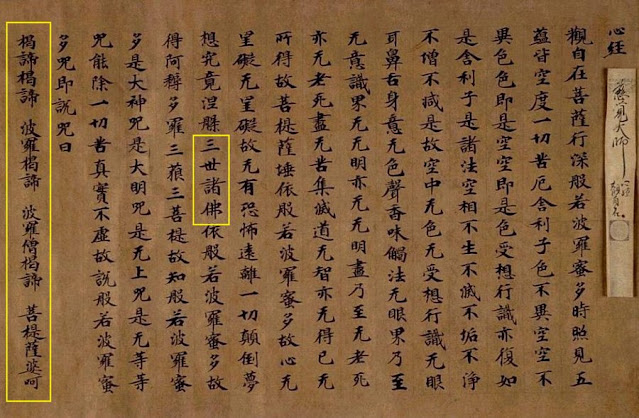 慈覚大師
心経
觀自在菩薩行深般若波羅蜜多時照見五
蘊皆空度一切苦厄舍利子色不異空空不
異色色即是空空即是色受想行識亦復如
是舍利子是諸法空相不生不滅不垢不淨
不增不減是故空中无色无受想行識无眼
耳鼻舌身意无色聲香味觸法无眼界乃至
无意識界无无明亦无无明盡乃至无老死
亦无老死盡无苦集滅道无智亦无得已无
所得故菩提薩埵依般若波羅蜜多故心无
罣礙无罣礙故无有恐怖遠離一切顛倒夢
想究竟涅槃三世諸佛依般若波羅蜜多故
得阿耨多羅三藐三菩提故知般若波羅蜜
多是大神咒是大明咒是无上咒是无等等
咒能除一切苦真實不虛故說般若波羅蜜
多咒即說咒曰
揭諦揭諦 波羅揭諦 波羅僧揭諦 菩提薩婆呵